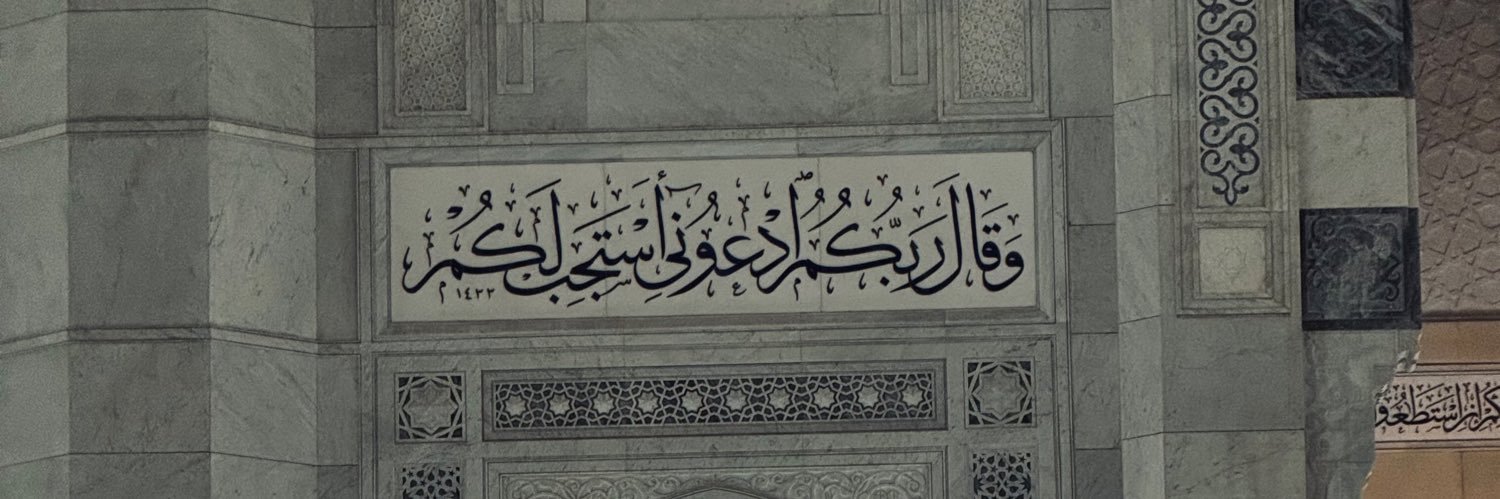 وَقَالَ رَبُّكُمُ ادْعُونِي أَسْتَجِبْ لَكُمْ
١٤٢٢
كُمْ إِنِ اسْتَطَٰعُو